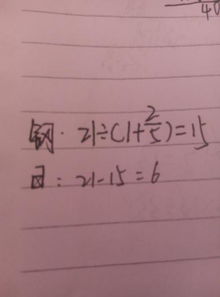 40
钢: 21÷(1+2/5)=15
日: 21-15=6